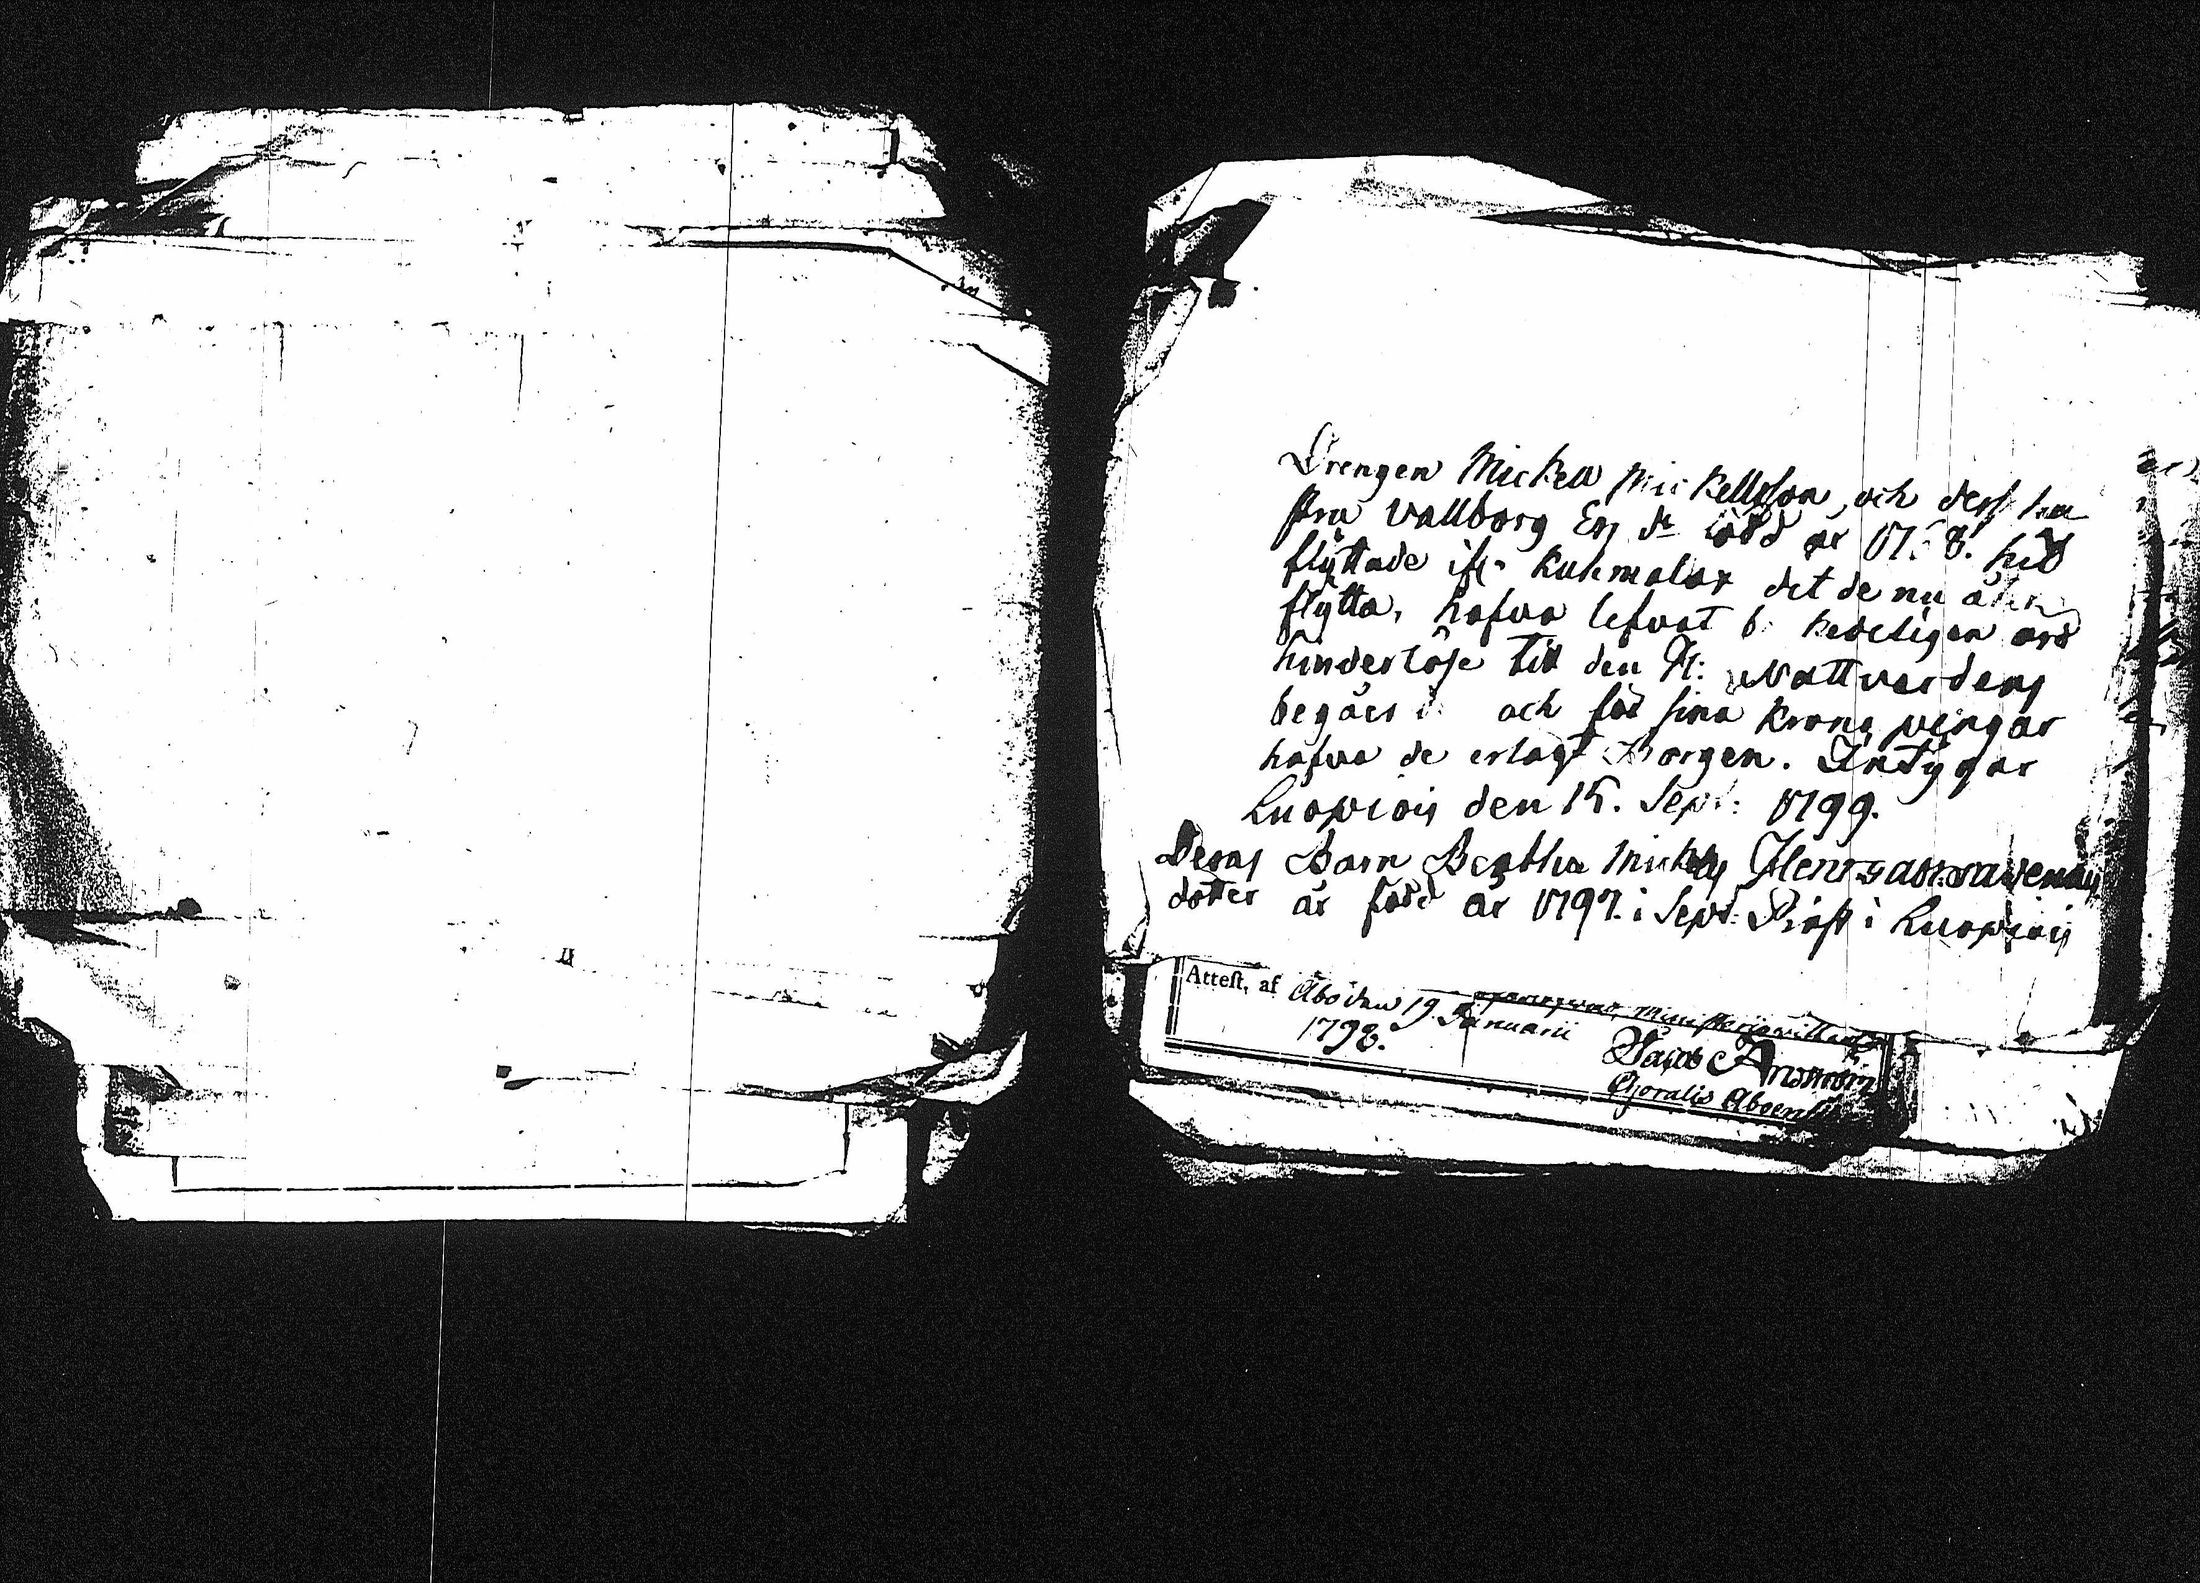 Drengen Mickell Mickellsson, och dess hu
stru Vallborg Ers dr född år 17 8. hid
flyttade ifr. Kuhmalax det de nu åter
flytta, hafva lefvat hedeligen och
hinderlöse till den H: Nattvardens
begående och för sina Krono pengar
hafva de erlagt Borgen. Intygar
Luopiois den 15. Sept: 1799.
Deras Barn Beatha Mickels
dotter är född år 1797. i Sept. Präst i Luopiois
Attest, af Åbo den 19. Januarii
1798.
Jacob
Choralis Aboens